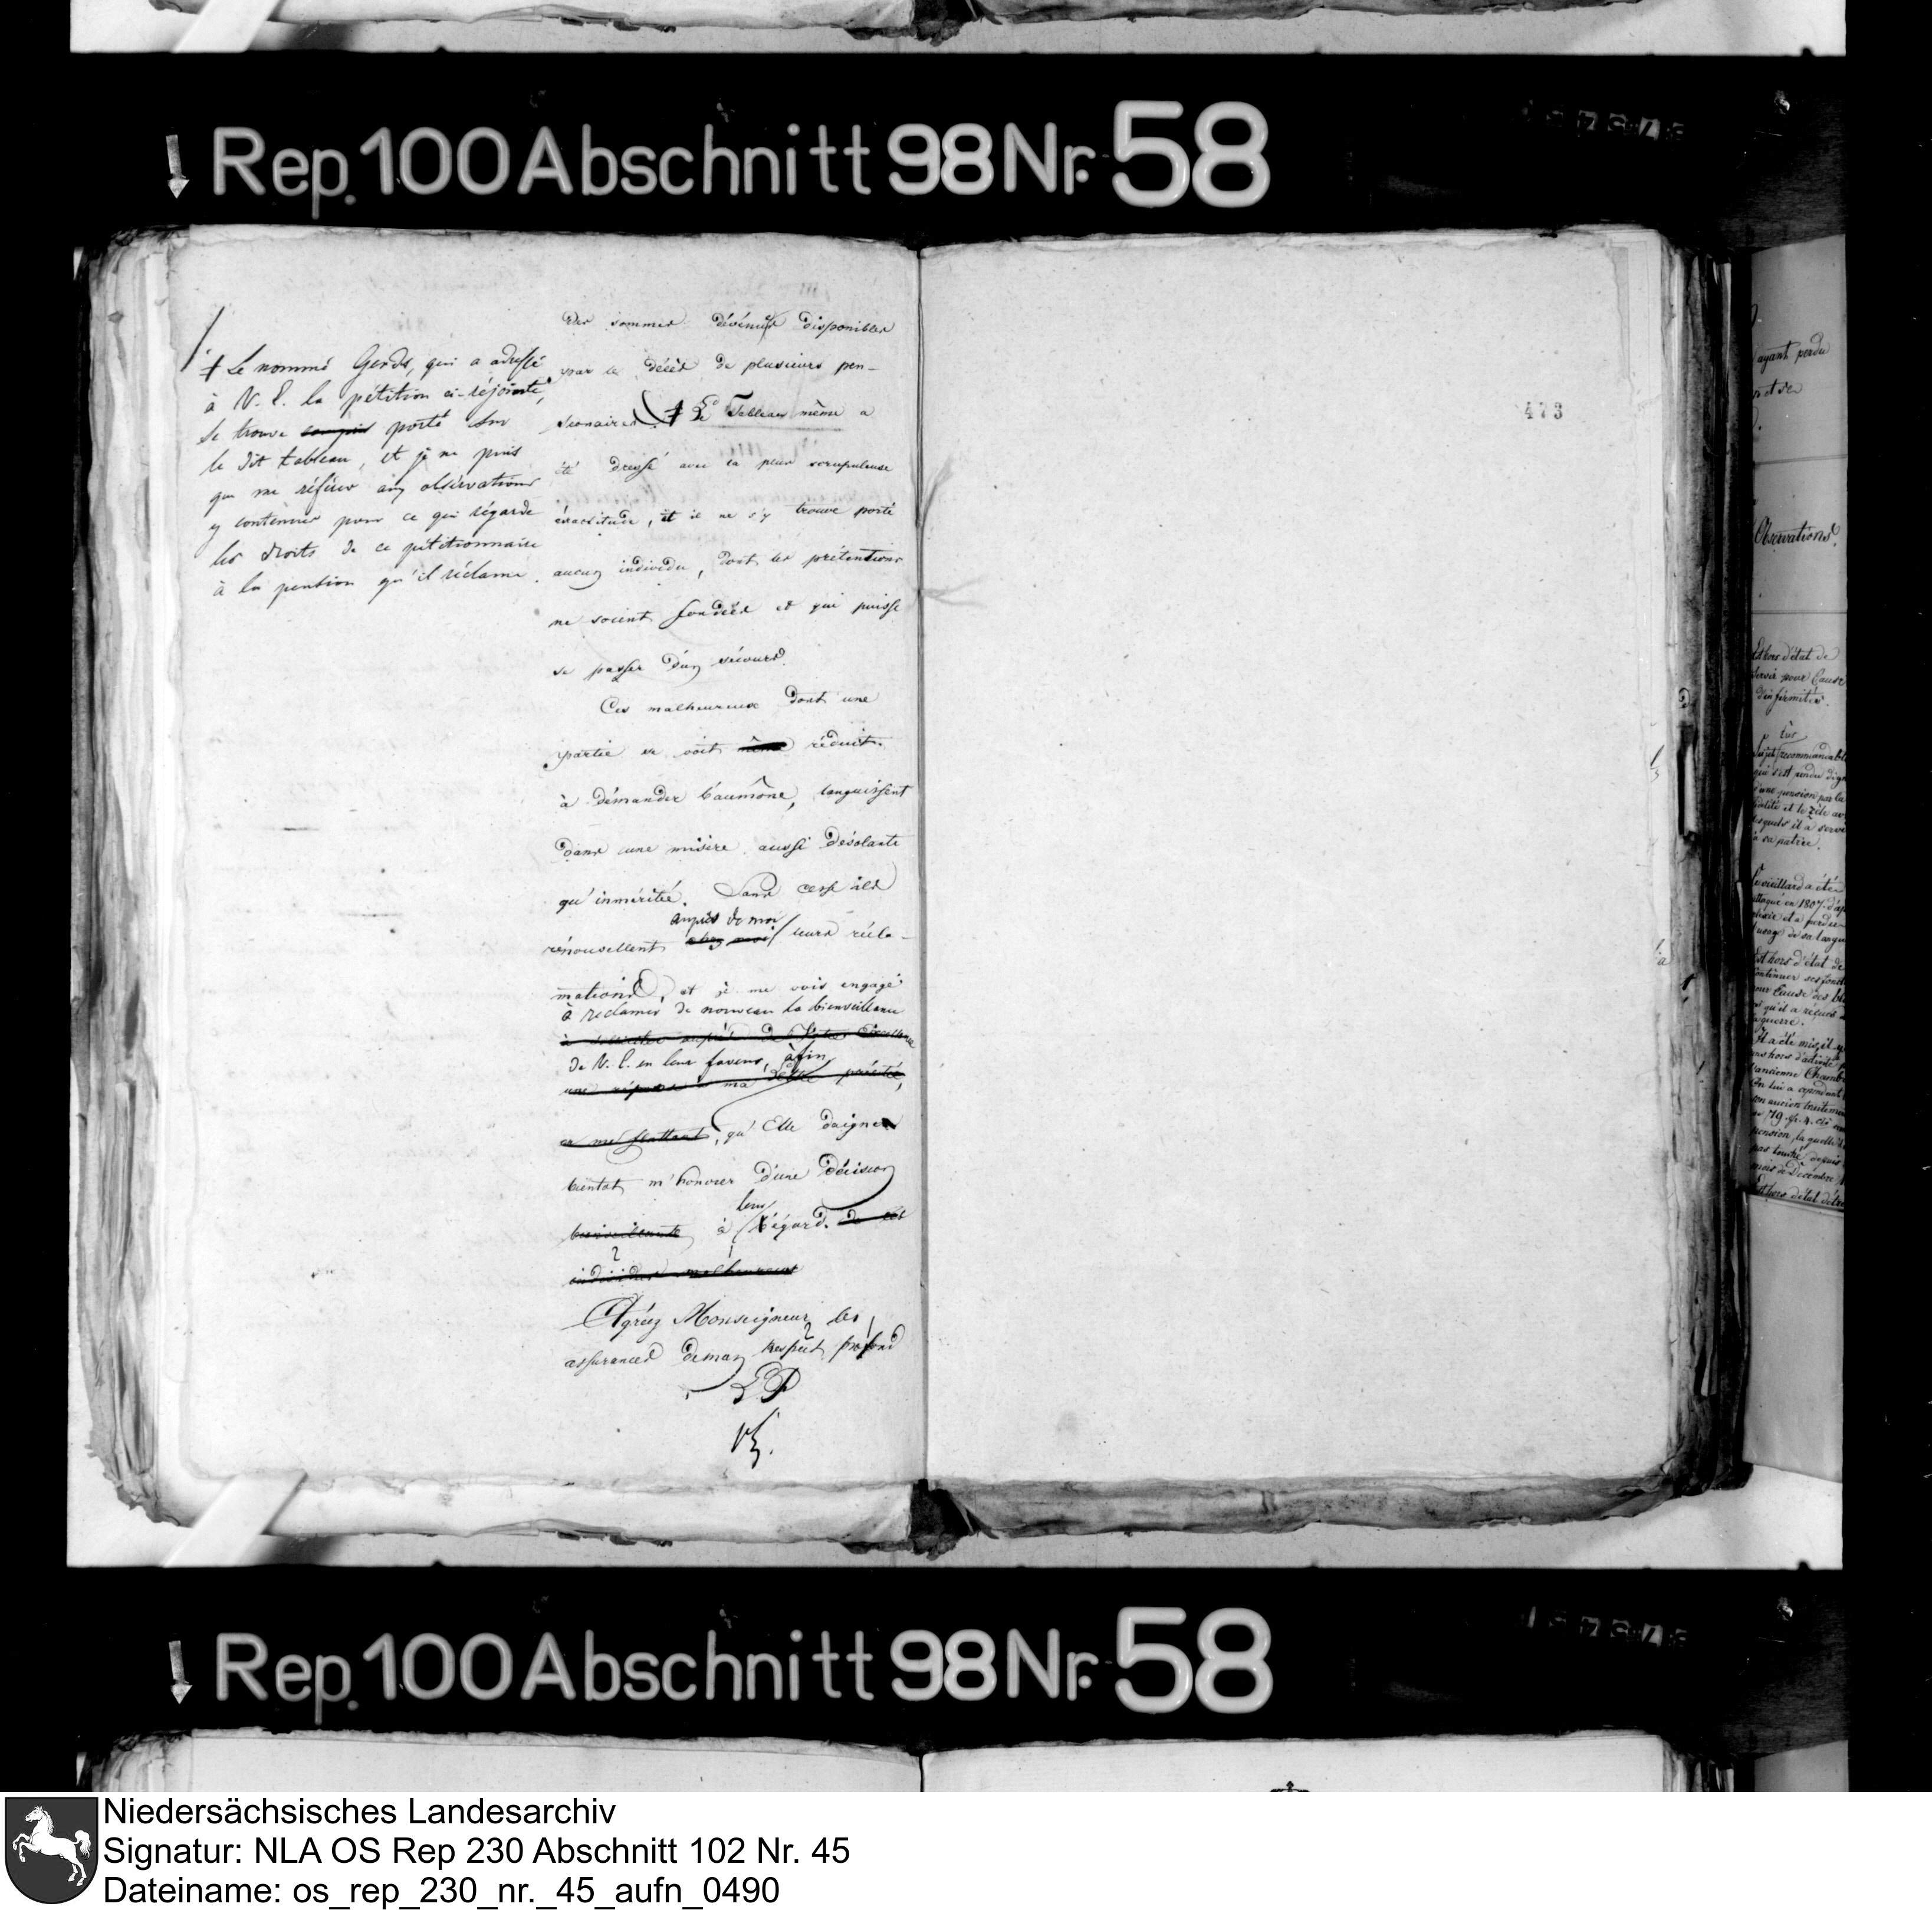 Rep. 100 Abschnitt 98 Nr. 58
Le nommé Gerds, qui a adressé
à V. E. la pétition ci-réjointe,
se trouve porté sur
le dit tableau, et je ne puis
que me référer aux observations
y contenues pour ce qui régarde
les droits de ce pétitionnaire
à la pention qu'il réclame.
des sommes dévenues disponibles
par le décès de plusieurs pen-
sionaires. Le Tableau même a
été dressé avec la plus scrupuleuse
éxactitude, et il ne s'y trouve porté
aucun individu, dont les prétentions
ne soient fondées et qui puisse
se passer d'un sécours.
Ces malheureux dont une
partie se voit même réduit
à démander l'aumône, languissent
dans une misère aussi désolante
qu'inméritée. Sans cesse ils
auprès de moi
rénouvellent chez moi leurs récla-
mations, et je me vois engagé
à réclamer de nouveau la bienveillance
à solliciter auprès de Votre Excellence
de V. E. en leur faveur, àfin
une réponse à ma dite précitée,
en me flattant, qu'Elle daigne
bientot m'honorer d'une décision
leur
bienveillante à l'égard de ces
individus malheureux
Agréez Monseigneur les
assurances de mon respect profond
LP
473
ayant perdu
Observations.
Est hors d'état de
servir pour Cause
d'infirmités.
Sujet recommandable
qui s'est rendu digne
d'une pension par la
fidélité et le zèle av
lesquels il a servi
à sa patrie.
Ce vieillard a été
attaqué en 1807 d'ap
plexie et a perdu
l'usage de sa langue
Est hors d'état de
continuer ses fonct
pour Cause des bl
qu'il a reçues
guerre.
Il a été mis, il y
hors d'activité
l'ancienne Chamb
On lui a cependant
son ancien traitement
pension, laquelle
pas touché depuis
mois de Décembre
Est hors d'état d'être
Rep. 100 Abschnitt 98 Nr. 58
Niedersächsisches Landesarchiv
Signatur: NLA OS Rep 230 Abschnitt 102 Nr. 45
Dateiname: os_rep_230_nr._45_aufn_0490